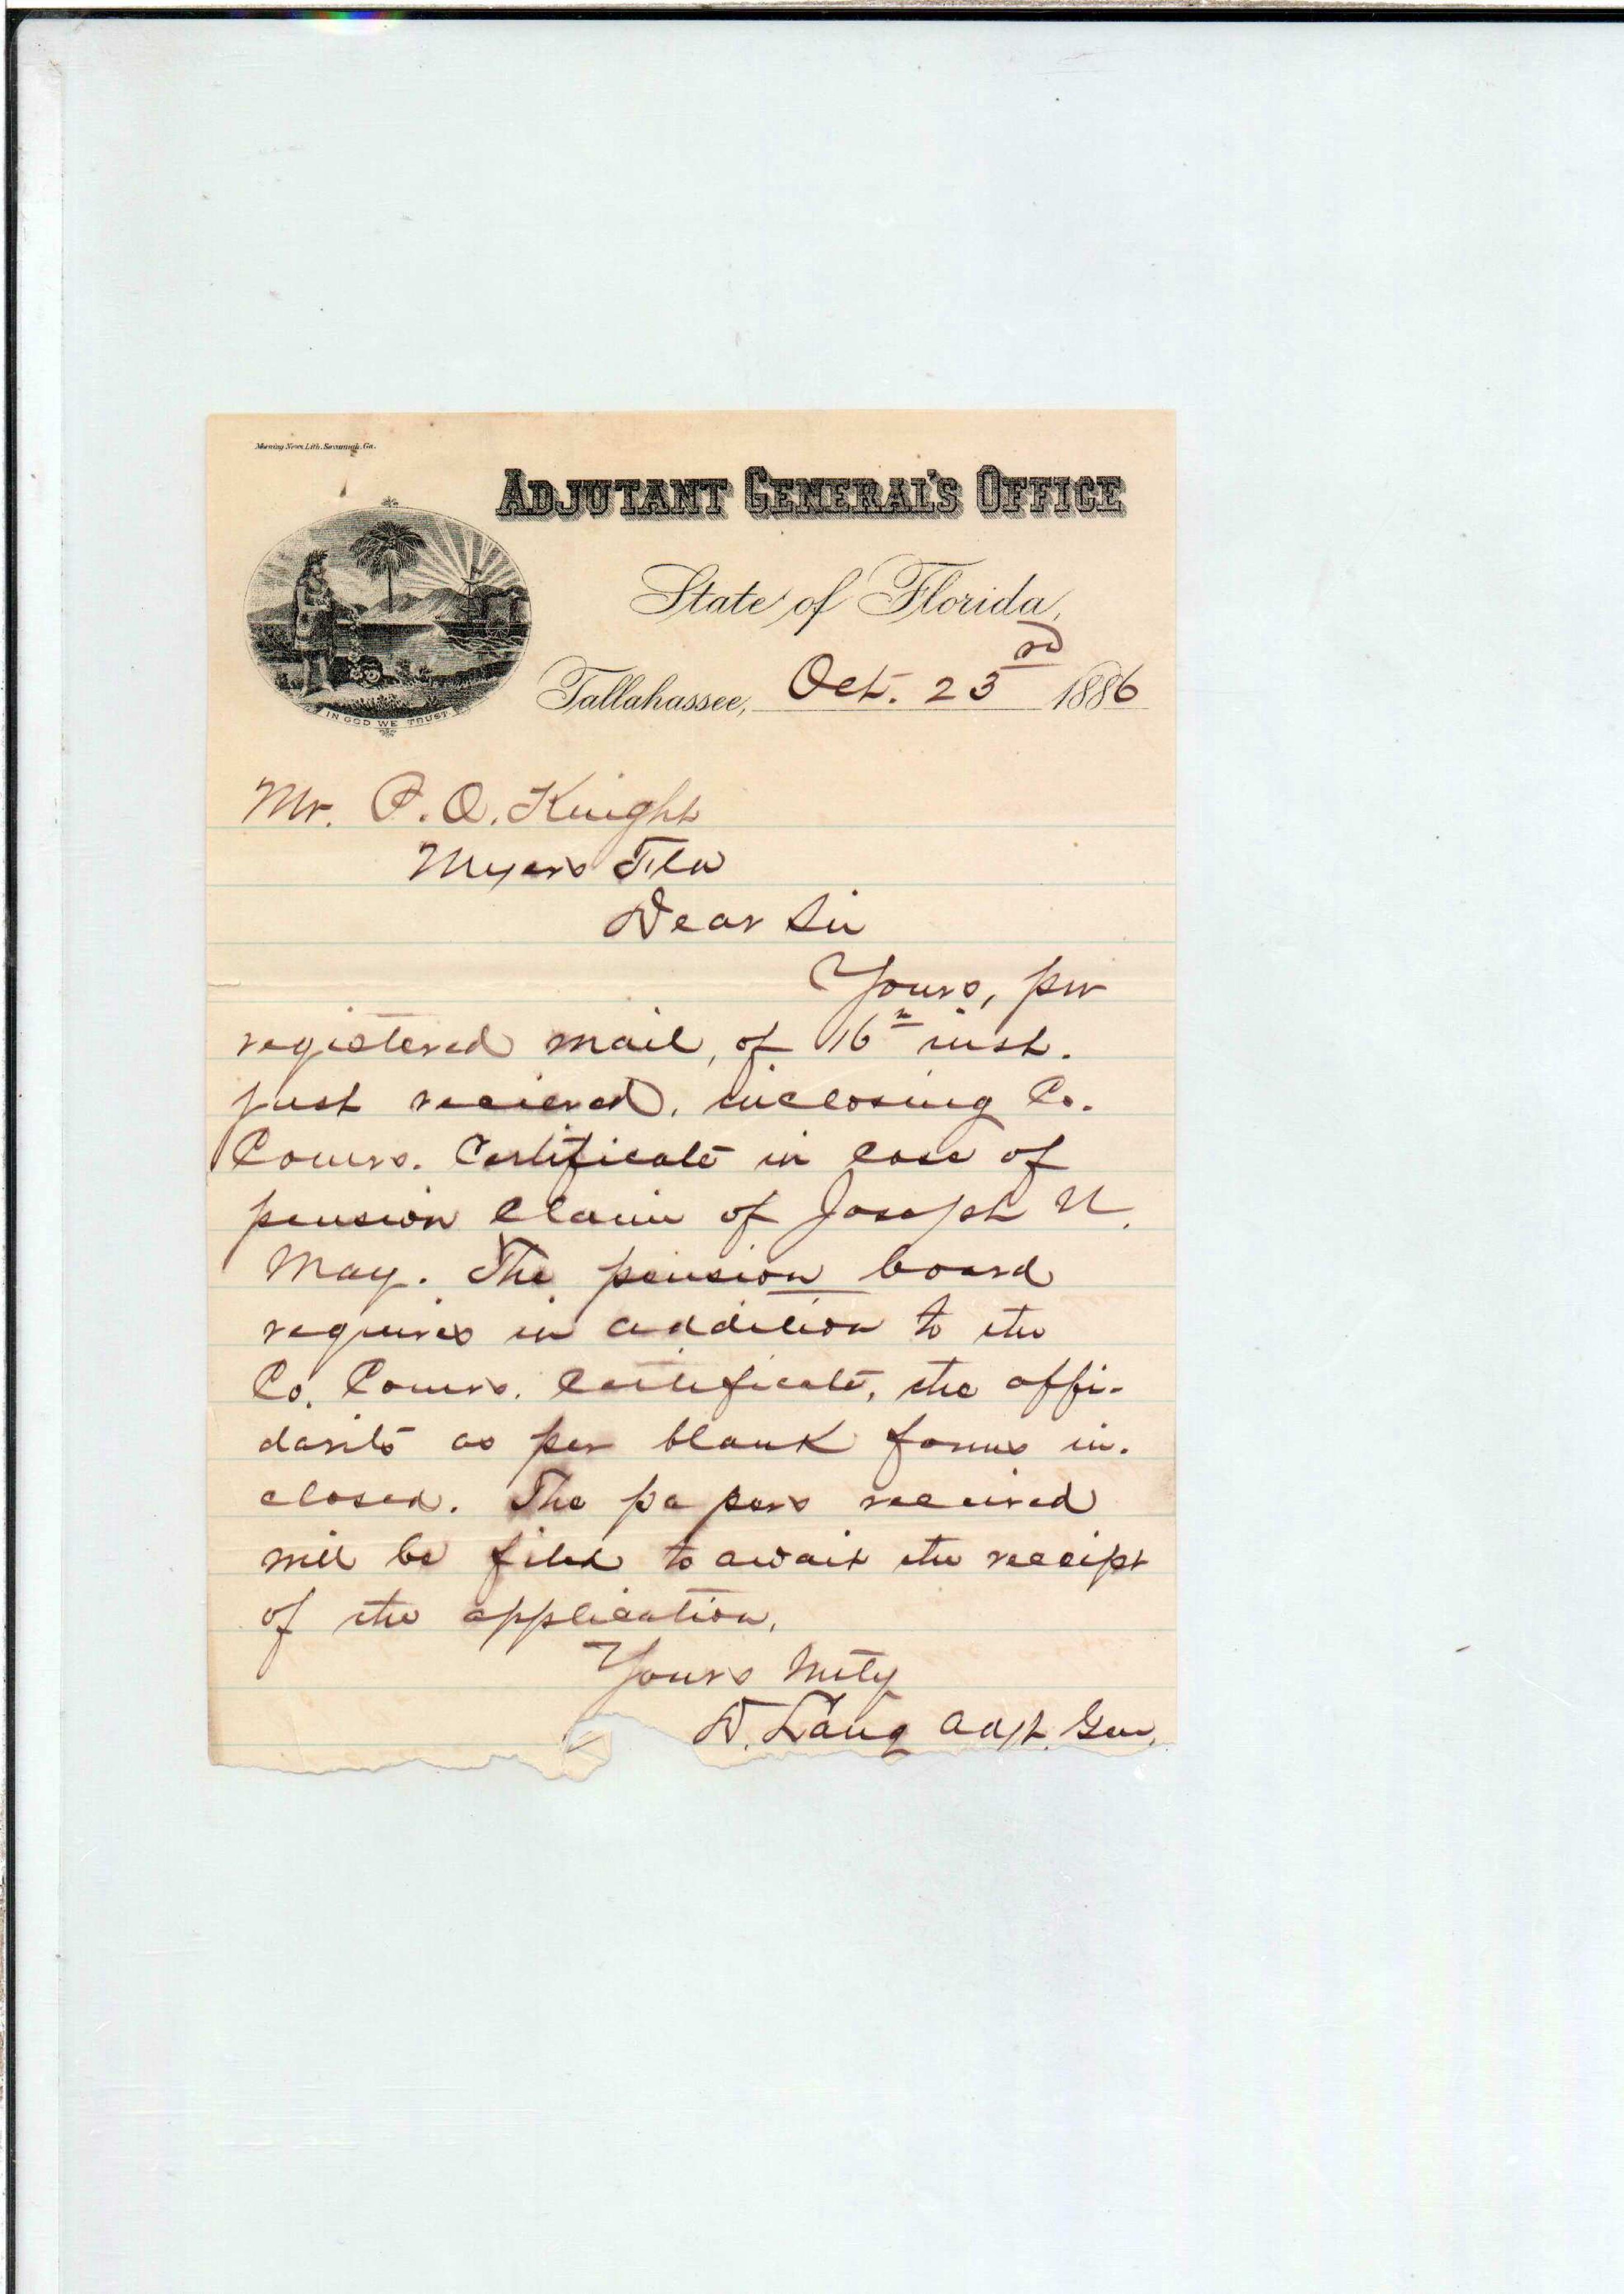 Morning News Lith. Savannah, Ga.
ADJUTANT GENERAL'S OFFICE
State of Florida,
Tallahassee, Oct. 23rd 1886
IN GOD WE TRUST
Mr. P. O. Knight
Myers Fla
Dear Sir
Yours, per
registered mail, of 16th inst.
just recieved, inclosing Co.
Comrs. Certificate in case of
pension claim of Joseph N.
May. The pension board
requires in addition to the
Co. Comrs. Certificate, the affi-
davits as per blank forms in-
closed. The papers received
will be filed to await the receipt
of the application.
Yours truly
D. Lang Adjt. Gen.